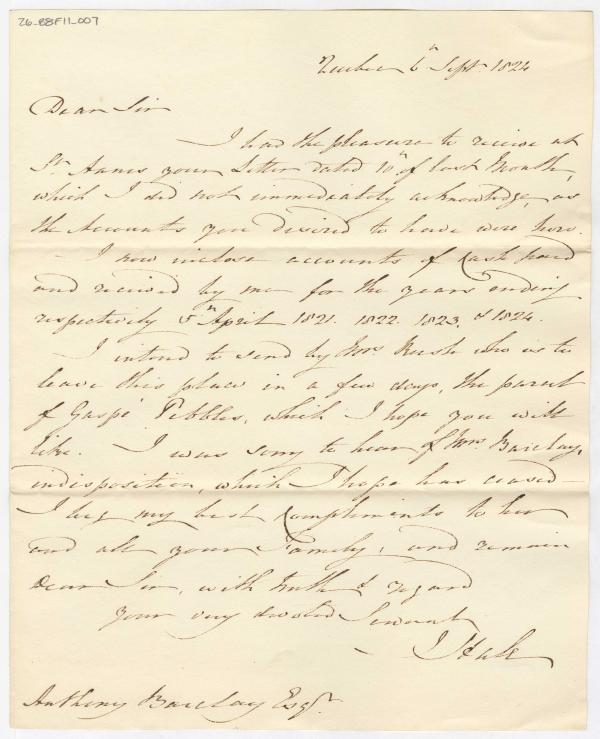 26-B8F11-007
Quebec 6th Sept. 1824
Dear Sir
I had the pleasure to receive at
St. Annes your Letter dated 10th of last Month,
which I did not immediately acknowledge, as
the Accounts you desired to have were here.
– I now inclose accounts of Cash paid
and received by me for the years ending
respectively 5th April 1821. 1822. 1823. & 1824.
I intend to send by Mrs. Rush who is to
leave this place in a few days, the parcel
of Gaspé Pebbles, which I hope you will
like. I was sorry to hear of Mrs Barclay,
indisposition, which I hope has ceased –
I beg my best Compliments to her
and all your Family, and remain
Dear Sir, with truth & regard
your very devoted Servant
J Hale
Anthony Barclay Esqr.